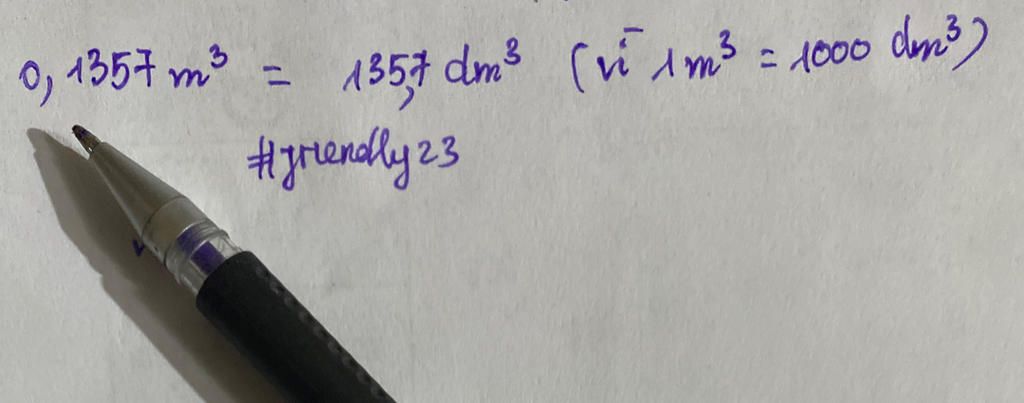 0,1357 m³ = 135,7 dm³ (vì 1m³ = 1000 dm³)
#friendly23